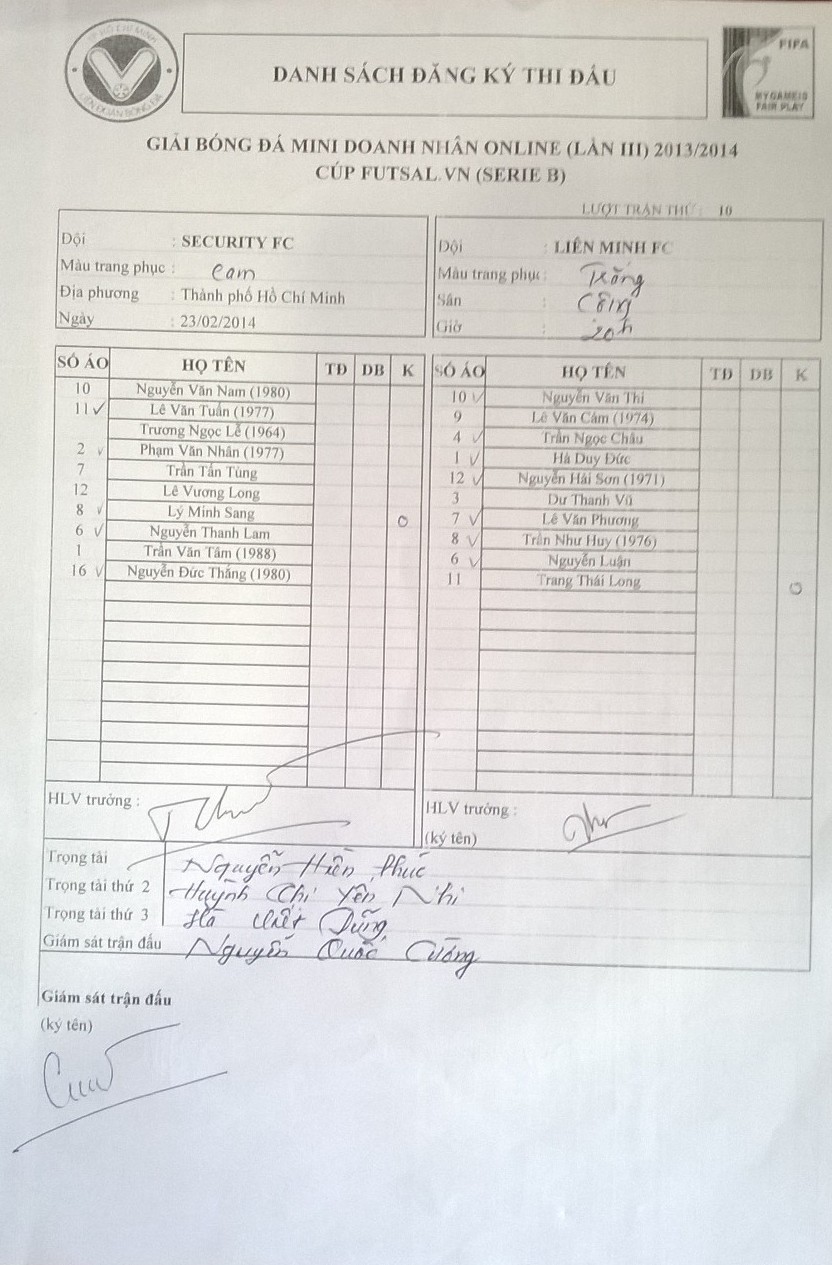 TP HỒ CHÍ MINH
LIÊN ĐOÀN BÓNG ĐÁ
DANH SÁCH ĐĂNG KÝ THI ĐẤU
FIFA
MY GAME IS
FAIR PLAY
GIẢI BÓNG ĐÁ MINI DOANH NHÂN ONLINE (LẦN III) 2013/2014
CÚP FUTSAL.VN (SERIE B)
LƯỢT TRẬN THỨ : 10
Đội : SECURITY FC
Màu trang phục : Cam
Địa phương : Thành phố Hồ Chí Minh
Ngày : 23/02/2014
Đội : LIÊN MINH FC
Màu trang phục : Trắng
Sân :
Giờ : 20h
SỐ ÁO HỌ TÊN TĐ DB K
10 Nguyễn Văn Nam (1980)
11 ✓ Lê Văn Tuấn (1977)
Trương Ngọc Lễ (1964)
2 ✓ Phạm Văn Nhân (1977)
7 Trần Tấn Tùng
12 Lê Vương Long
8 ✓ Lý Minh Sang O
6 ✓ Nguyễn Thanh Lam
1 Trần Văn Tâm (1988)
16 ✓ Nguyễn Đức Thắng (1980)
SỐ ÁO HỌ TÊN TĐ DB K
10 ✓ Nguyễn Văn Thi
9 Lê Văn Cám (1974)
4 ✓ Trần Ngọc Châu
1 ✓ Hà Duy Đức
12 ✓ Nguyễn Hải Sơn (1971)
3 Dư Thanh Vũ
7 ✓ Lê Văn Phương
8 ✓ Trần Như Huy (1976)
6 ✓ Nguyễn Luận
11 Trang Thái Long O
HLV trưởng :
HLV trưởng :
(ký tên)
Trọng tài Nguyễn Hiền Phúc
Trọng tài thứ 2 Huỳnh Chị Yến Nhi
Trọng tài thứ 3 Hà Dũng
Giám sát trận đấu Nguyễn Quốc Cường
Giám sát trận đấu
(ký tên)